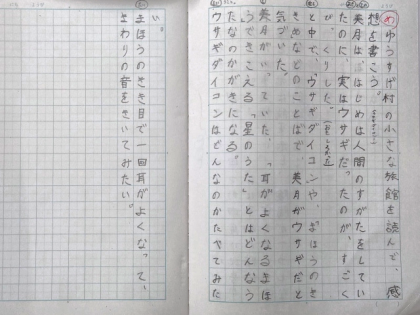 め ゆうすげ村の小さな旅館を読んで、感
想を書こう。
美月は、はじめは人間のすがたをしてい
たのに、実はウサギだったのが、すごく
びっくりした。
と中で、ウサギダイコンや、まほうのき
きめなどのことばで、美月がウサギだと
気づいた。
美月がいっていた、「耳がよくなるまほ
うできこえる「星のうた」とはどんなう
たなのかきになる。
ウサギダイコンはどんなのかたべてみた
い。
まほうのきき目で一回耳がよくなって、
まわりの音をきいてみたい。